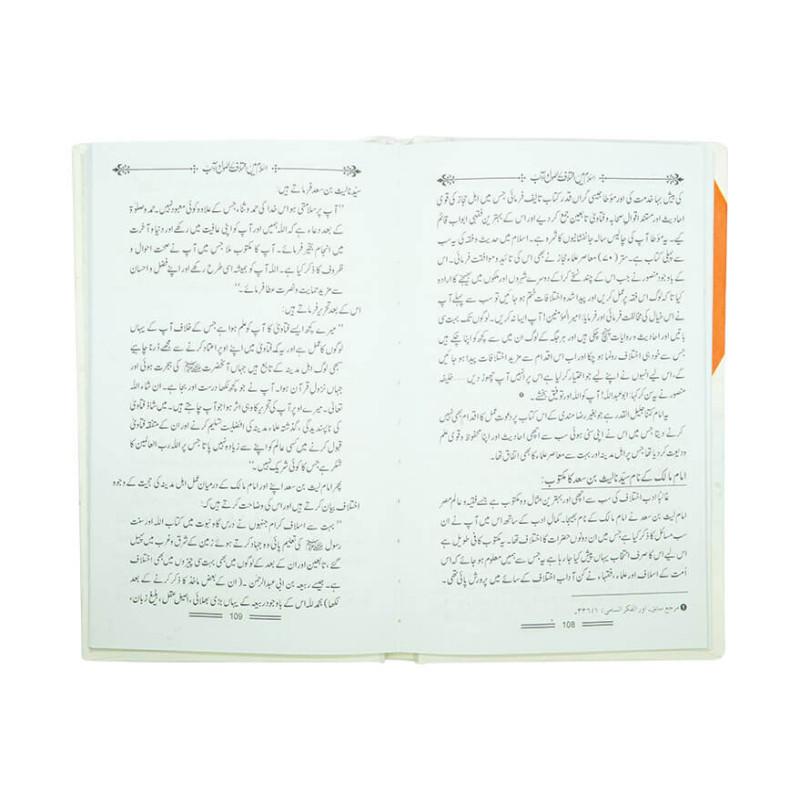 اسلام میں اختلاف کے اصول و آداب
کی بیش بہا خدمت کی اور مؤطا جیسی گراں قدر کتاب تالیف فرمائی جس میں اہل حجاز کی قوی
احادیث اور مستند اقوال صحابہ و فتاویٰ تابعین جمع کر دیے اور اس کے بہترین فقہی ابواب قائم
کیے۔ یہ مؤطا آپ کی چالیس سالہ جانفشانیوں کا ثمرہ ہے۔ اسلام میں حدیث و فقہ کی یہ سب
سے پہلی کتاب ہے۔ ستر (۷۰) معاصر علماء حجاز نے بھی اس کی تائید و موافقت فرمائی۔ اس
کے باوجود منصور نے جب اس کے چند نسخے کرا کے دوسرے شہروں اور ملکوں میں بھیجنے کا ارادہ
کیا تاکہ لوگ اس فقہ پر عمل کریں اور پیدا شدہ اختلافات ختم ہو جائیں تو سب سے پہلے آپ
نے اس خیال کی مخالفت فرمائی اور فرمایا: امیر المؤمنین! آپ ایسا نہ کریں۔ لوگوں تک بہت سی
باتیں اور احادیث و روایات پہنچ چکی ہیں اور ہر جگہ کے لوگ ان میں سے کچھ کو اپنا چکے ہیں
جس سے خود ہی اختلاف رونما ہو چکا اور اب اس اقدام سے مزید اختلافات پیدا ہو جائیں
گے، اس لیے انہوں نے اپنے لیے جو اختیار کر لیا ہے اس پر انہیں آپ چھوڑ دیں ۔۔۔۔ خلیفہ
منصور نے یہ سن کر کہا: ابو عبد اللہ! آپ کو اللہ اور توفیق بخشے۔ ❶
یہ امام کتنا جلیل القدر ہے جو بغیر رضا مندی کے اس کتاب پر دعوت عمل کا اقدام بھی نہیں
کرنے دیتا جس میں اس نے اپنی سنی ہوئی سب سے اچھی احادیث اور اپنا محفوظ و قوی علم
ودیعت کر دیا تھا جس پر اہل مدینہ اور بہت سے معاصر علماء کا بھی اتفاق تھا۔
امام مالک کے نام سیّدنا لیث بن سعد کا مکتوب:
غالباً ادب اختلاف کی سب سے اچھی اور بہترین مثال وہ مکتوب ہے جسے فقیہ و عالم مصر
امام لیث بن سعد نے امام مالک کے نام بھیجا۔ کمال ادب کے ساتھ اس میں آپ نے ان
سب مسائل کا ذکر کیا ہے جس میں ان دونوں حضرات کا اختلاف تھا۔ یہ مکتوب کافی طویل ہے
اس لیے اس کا صرف انتخاب یہاں پیش کیا جا رہا ہے جس سے ہمیں معلوم ہو جائے کہ اس
اُمت کے اسلاف اور علماء و فقہاء نے کن آداب اختلاف کے سائے میں پرورش پائی تھی۔
❶ مرجع سابق، اور الفکر السامی: ۱/۳۳۶۔
108
اسلام میں اختلاف کے اصول و آداب
سیّدنا لیث بن سعد فرماتے ہیں:
’’آپ پر سلامتی ہو اس خدا کی حمد و ثناء جس کے علاوہ کوئی معبود نہیں۔ حمد و صلوٰۃ
کے بعد دعاء ہے کہ اللہ ہمیں اور آپ کو اپنی عافیت میں رکھے اور دنیا و آخرت
میں انجام بخیر فرمائے۔ آپ کا مکتوب ملا جس میں آپ نے صحت احوال و
ظروف کا ذکر کیا ہے۔ اللہ آپ کو ہمیشہ اسی طرح رکھے اور اپنے فضل و احسان
سے مزید حمایت و نصرت عطا فرمائے۔‘‘
اس کے بعد تحریر فرماتے ہیں:
’’میرے کچھ ایسے فتاویٰ کا آپ کو علم ہوا ہے جس کے خلاف آپ کے یہاں
لوگوں کا عمل ہے اور یہ کہ فتاویٰ میں اپنے اوپر اعتماد کرنے سے مجھے ڈرنا چاہیے
سبھی لوگ اہل مدینہ کے تابع ہیں جہاں آنحضرت ﷺ کی ہجرت ہوئی اور
جہاں نزول قرآن ہوا۔ آپ نے جو کچھ لکھا درست اور بجا ہے۔ ان شاء اللہ
تعالیٰ۔ میرے اوپر آپ کی تحریر کا وہی اثر ہوا جو آپ چاہتے ہیں۔ میں شاذ فتاویٰ
کی ناپسندیدگی، گذشتہ علماء مدینہ کی افضلیت تسلیم کرنے اور ان کے متفقہ فتاویٰ
قبول کرنے میں کسی عالم کو اپنے سے زیادہ نہیں پاتا جس پر اللہ رب العالمین کا
شکر ہے جس کا کوئی شریک نہیں۔‘‘
پھر امام لیث بن سعد اپنے اور امام مالک کے درمیان عمل اہل مدینہ کی حجیت کے وجوہ
اختلاف بیان کرتے ہیں اور اس کی وضاحت کرتے ہیں کہ:
’’بہت سے اسلاف کرام جنہوں نے درس گاہ نبوت میں کتاب اللہ اور سنت
رسول ﷺ کی تعلیم پائی وہ جہاد کرتے ہوئے زمین کے شرق و غرب میں پھیل
گئے، تابعین اور ان کے بعد کے لوگوں میں بھی بہت سی چیزوں میں بھی اختلاف
ہے۔ جیسے ربیعہ بن ابی عبد الرحمٰن۔ (ان کے بعض ماخذ کا ذکر کرنے کے بعد
لکھا) بحمد للہ اس کے باوجود ربیعہ کے یہاں بڑی بھلائی، اصیل عقل، بلیغ زبان،
109